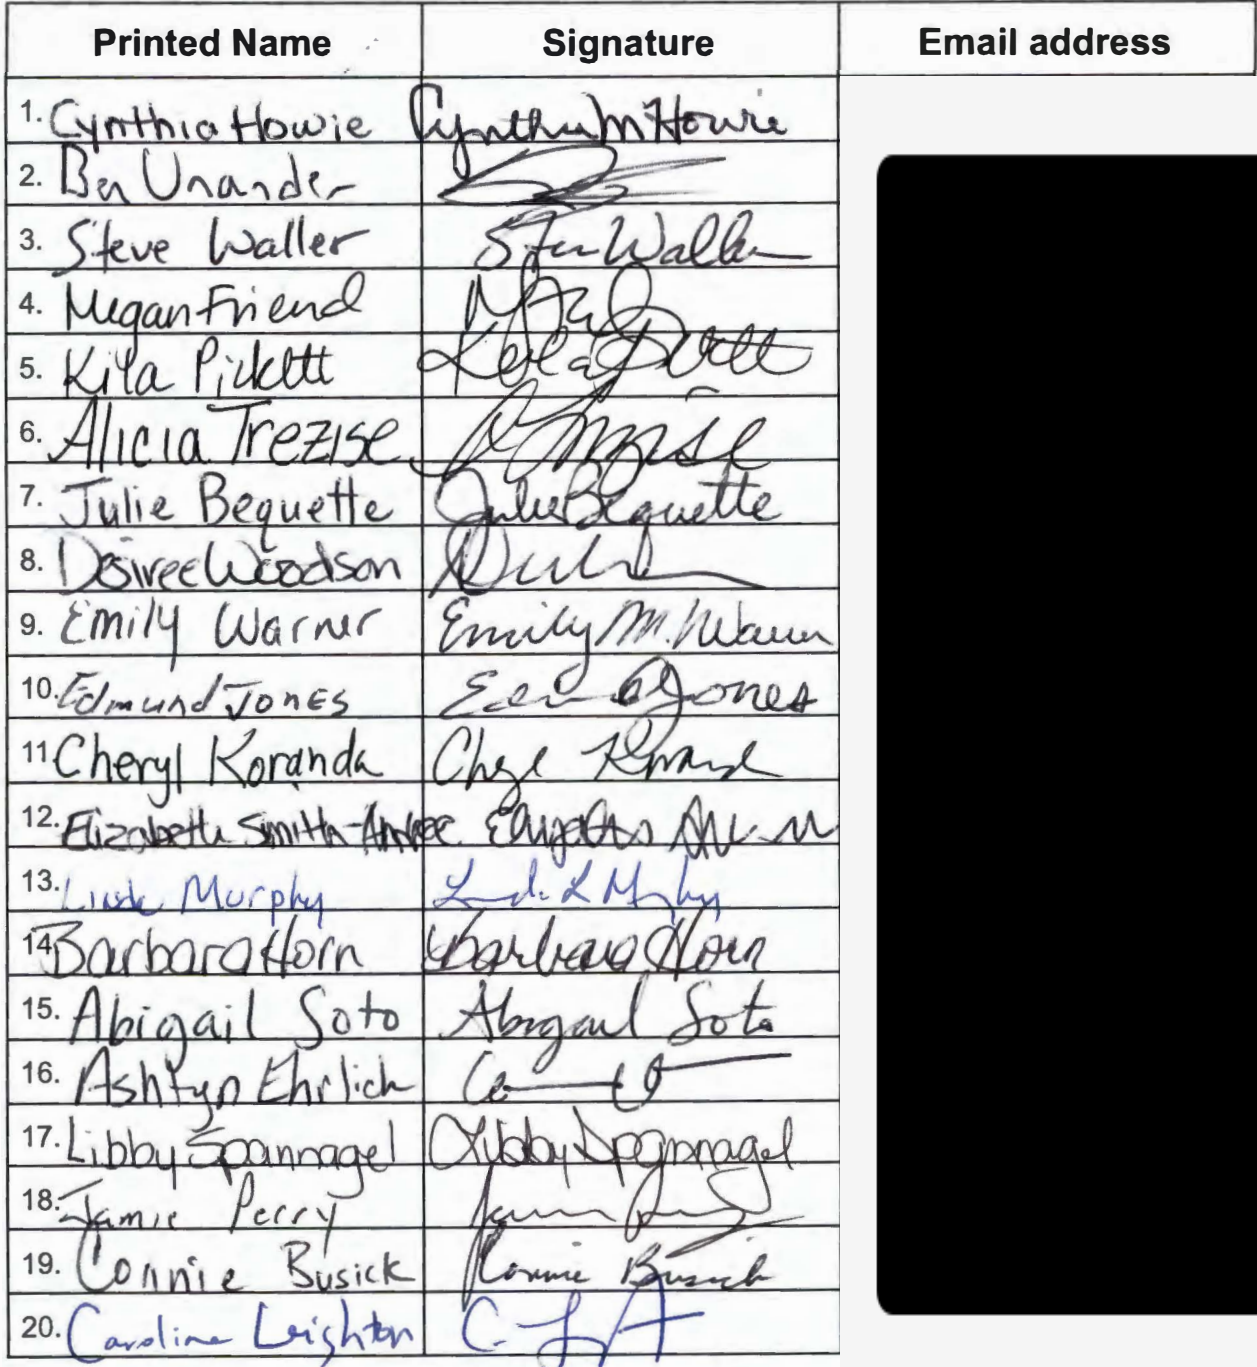 Printed Name Signature Email address
1. Cynthia Howie Cynthia M Howie
2. Ben Unander
3. Steve Waller Steve Waller
4. Megan Friend
5. Pickett
6. Alicia Trezise A Trezise
7. Julie Bequette Julie Bequette
8. Desiree Woodson
9. Emily Warner Emily M. Warner
10. Edmund Jones Jones
11 Cheryl Koranda Cheryl Koranda
12. Elizabeth Smith- Elizabeth
13. Linda Murphy Linda L Murphy
14 Barbara Horn Barbara Horn
15. Abigail Soto Abigail Soto
16. Ashtyn Ehrlich
17. Libby Spannagel Libby Spannagel
18. Jamie Perry
19. Connie Busick Connie Busick
20. Caroline Leighton